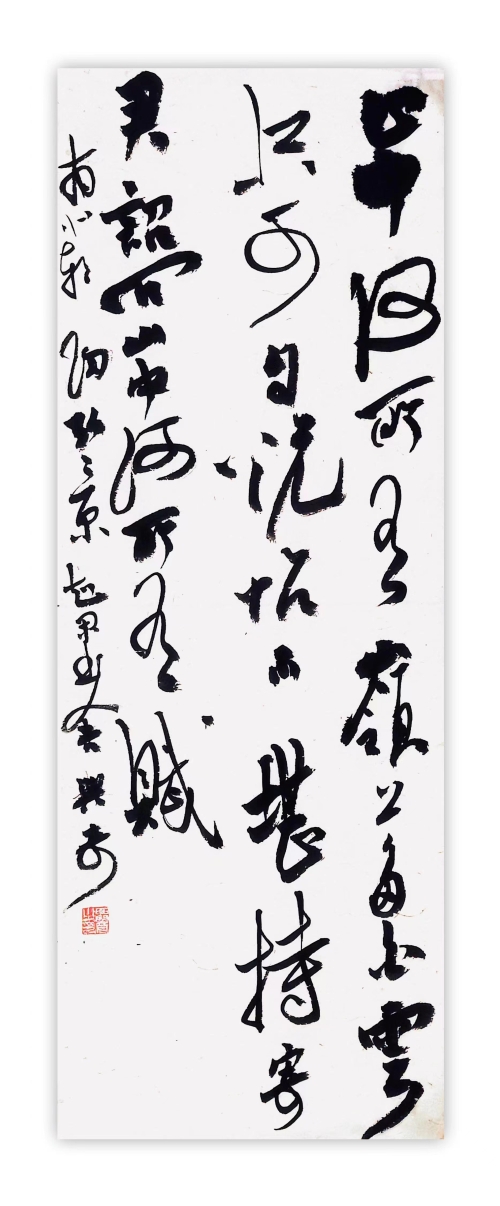 山中何所有嶺上多白雲
只可自悦怡不堪持寄
君詔問山中何所有賦
南北朝陶弘景